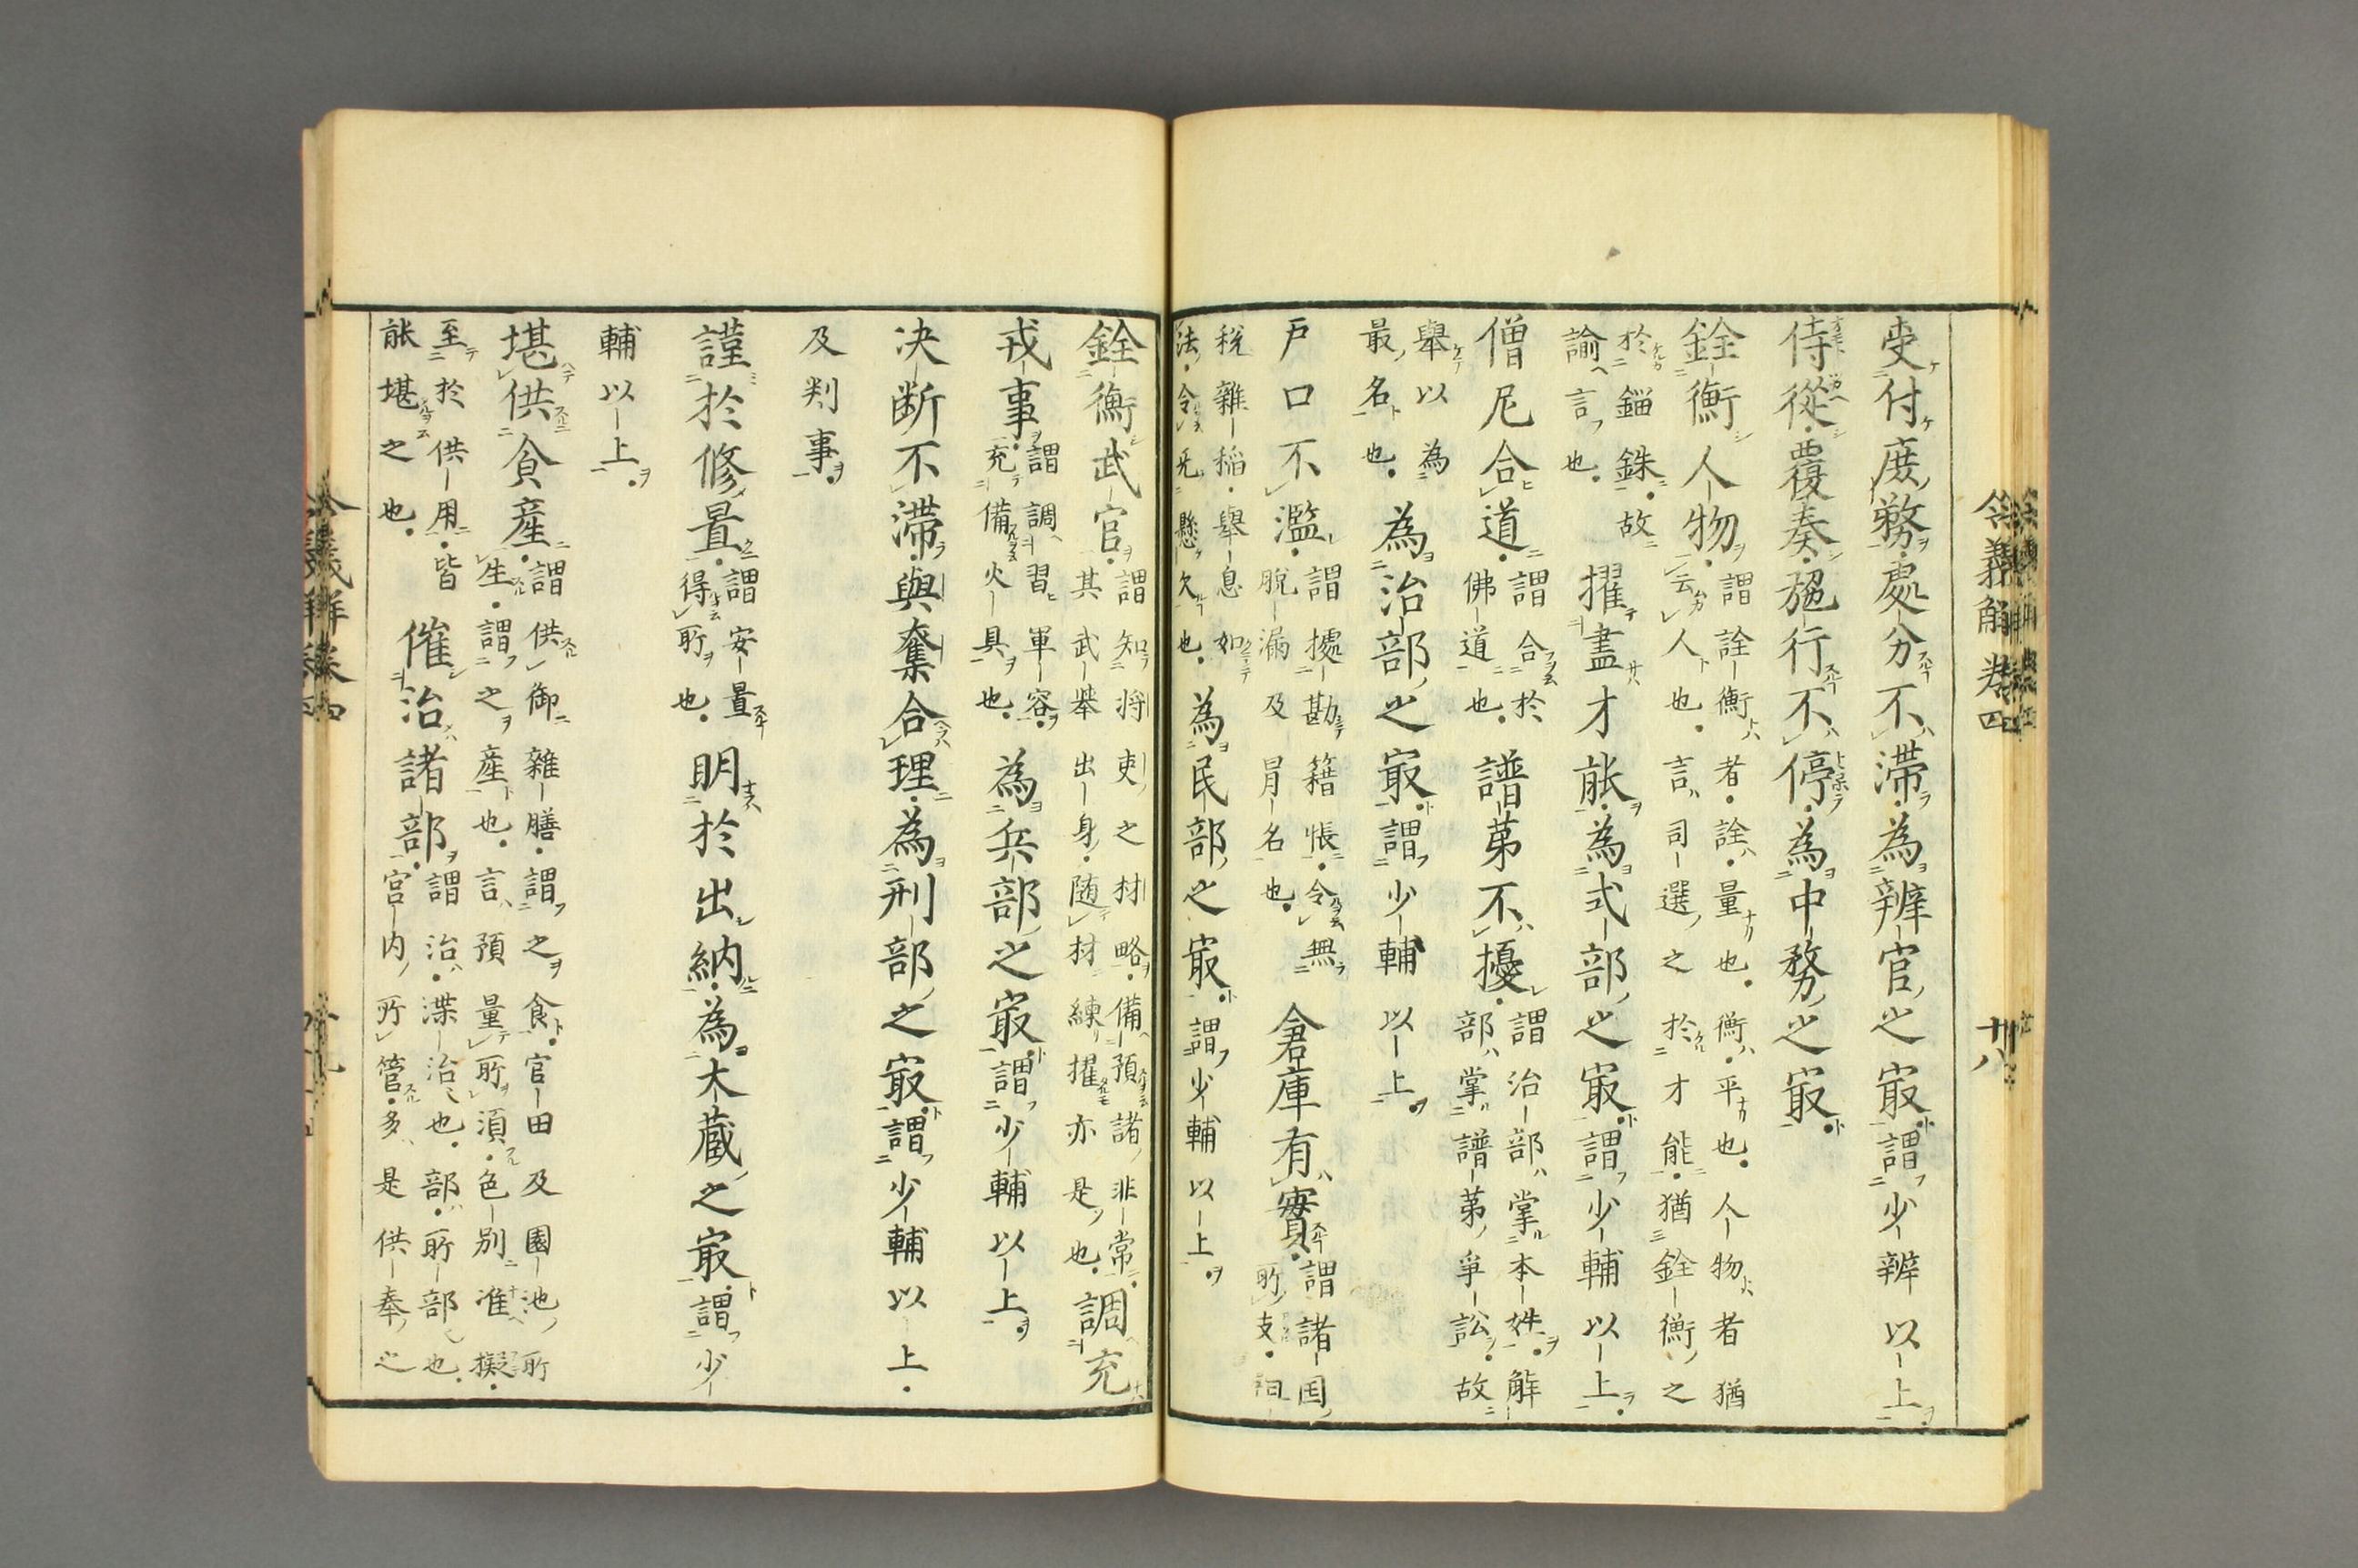 令義解卷四 廿八
受付庶務處分不滯爲辨官之㝡謂少辨以上
侍從覆奏施行不停爲中務之㝡
銓衡人物謂詮衡者詮量也衡平也人物者猶云人也言司選之於才能猶銓衡之
於錙銖故諭言也擢盡才能爲式部之㝡謂少輔以上
僧尼合道謂合於佛道也譜第不擾謂治部掌本姓解部掌譜第爭訟故
舉以爲最名也爲治部之㝡謂少輔以上
戸口不濫謂據勘籍帳令無脫漏及冐名也倉庫有實謂諸国所支
稅雜稲舉息如法令无懸欠也爲民部之㝡謂少輔以上
銓衡武官謂知将吏之材略備預諸非常其武舉出身随材練擢亦是也調充
戎事謂調習軍容充備火具也爲兵部之㝡謂少輔以上
决断不滯與奪合理爲刑部之㝡謂少輔以上
及判事
謹於修置謂安置得所也明於出納爲大蔵之㝡謂少
輔以上
堪供食産謂供御雜膳謂之食官田及園池所生謂之産也言預量所須色別准擬
至於供用皆能堪之也催治諸部謂治渫治也部所部也宮内所管多是供奉之